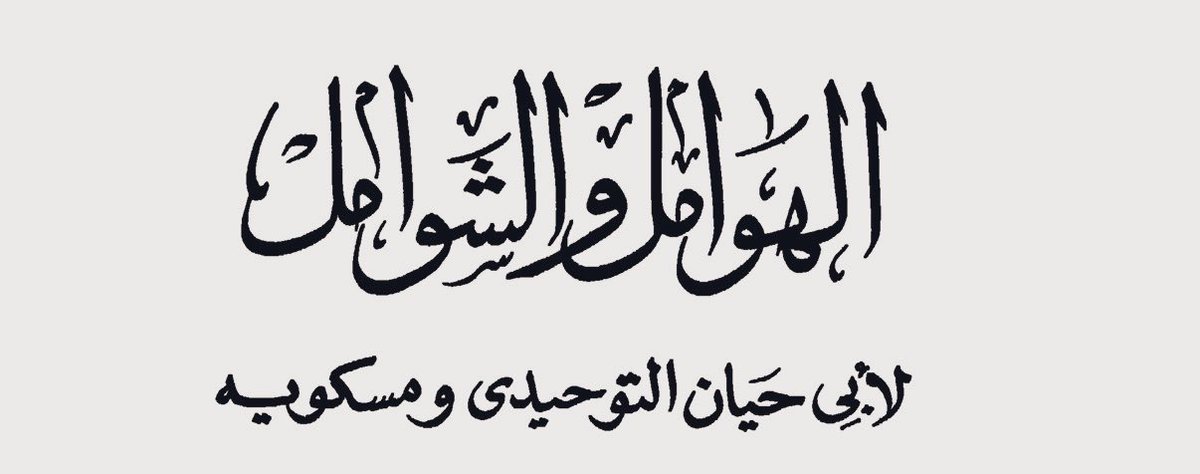 الهوامل والشوامل
لأبي حَيان التوحيدى ومسكويه